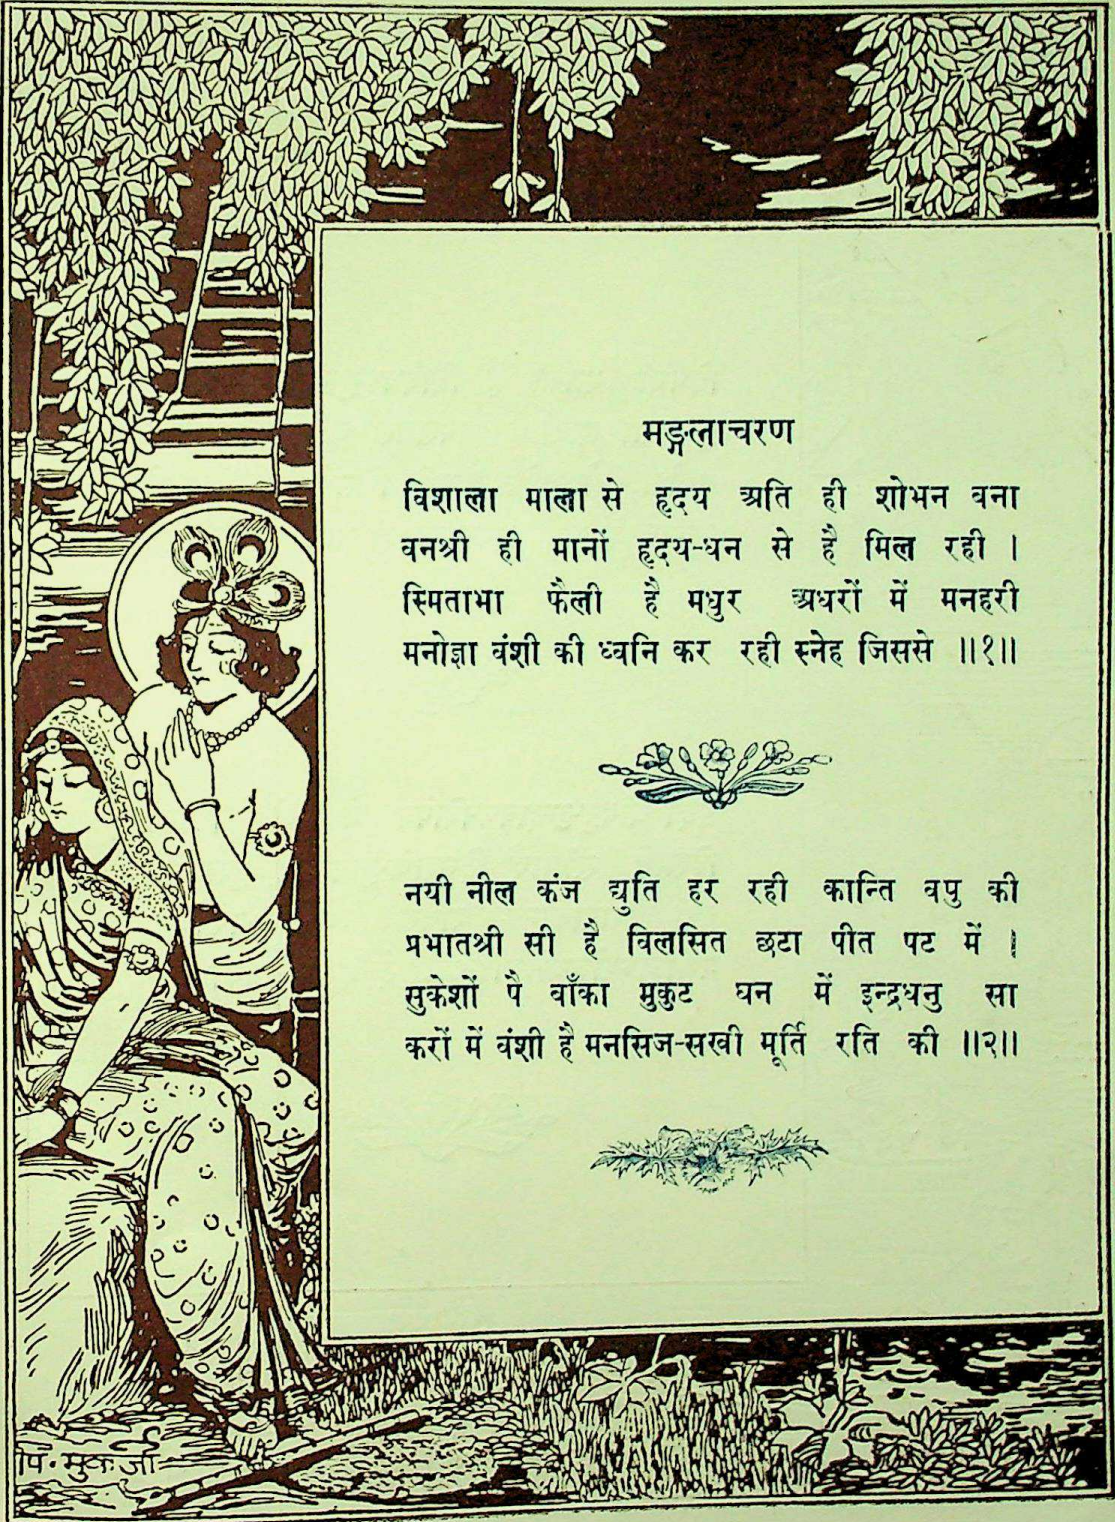 मङ्गलाचरण
विशाला माला से हृदय अति ही शोभन बना
वनश्री ही मानों हृदय-धन से है मिल रही ।
स्मिताभा फैली है मधुर अधरों में मनहरी
मनोज्ञा वंशी की ध्वनि कर रही स्नेह जिससे ॥१॥
नयी नील कंज द्युति हर रही कान्ति वपु की
प्रभातश्री सी है विलसित छटा पीत पट में ।
सुकेशों पै बाँका मुकुट घन में इन्द्रधनु सा
करों में वंशी है मनसिज-सखी मूर्ति रति की ॥२॥